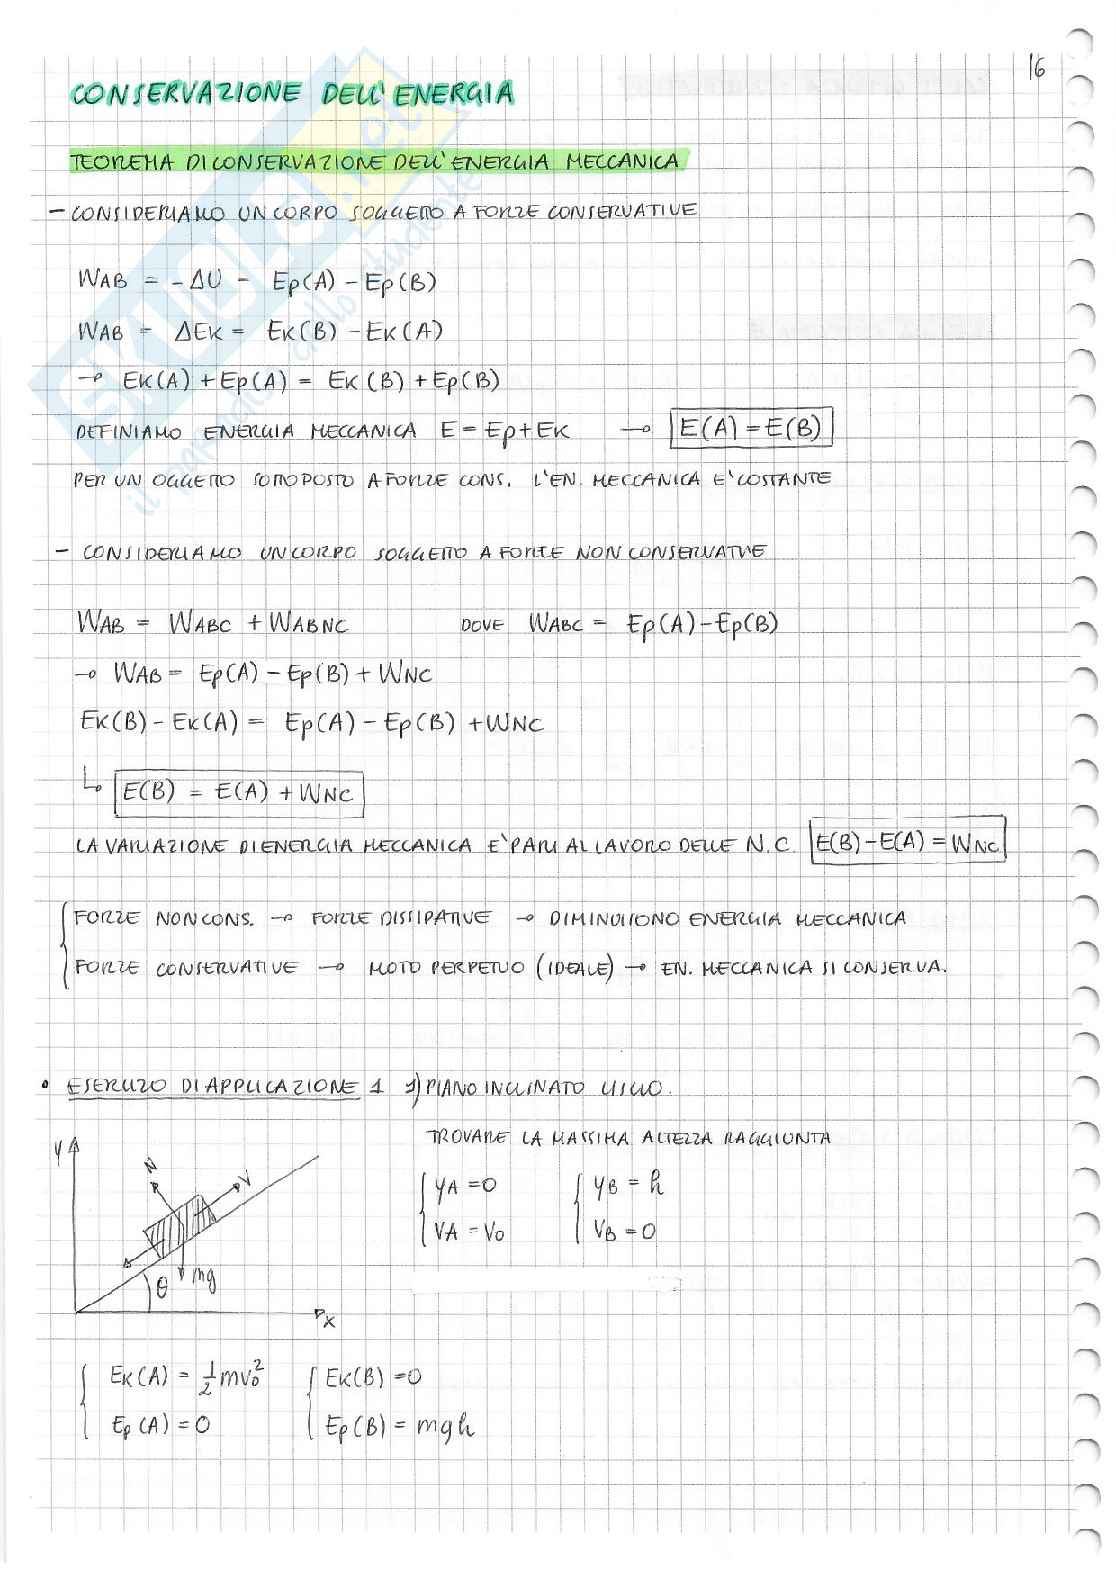 16
CONSERVAZIONE DELL'ENERGIA
TEOREMA DI CONSERVAZIONE DELL'ENERGIA MECCANICA
- CONSIDERIAMO UN CORPO SOGGETTO A FORZE CONSERVATIVE
WAB = -ΔU - Ep(A) - Ep(B)
WAB = ΔEK = EK(B) - EK(A)
→ EK(A) + Ep(A) = EK(B) + Ep(B)
DEFINIAMO ENERGIA MECCANICA E = Ep + EK → E(A) = E(B)
PER UN OGGETTO SOTTOPOSTO A FORZE CONS. L'EN. MECCANICA E' COSTANTE
- CONSIDERIAMO UN CORPO SOGGETTO A FORZE NON CONSERVATIVE
WAB = WABC + WABNC DOVE WABC = Ep(A) - Ep(B)
→ WAB = Ep(A) - Ep(B) + WNC
EK(B) - EK(A) = Ep(A) - Ep(B) + WNC
↳ E(B) = E(A) + WNC
LA VARIAZIONE DI ENERGIA MECCANICA E' PARI AL LAVORO DELLE N.C. E(B) - E(A) = WNC
FORZE NON CONS. → FORZE DISSIPATIVE → DIMINUISCONO ENERGIA MECCANICA
FORZE CONSERVATIVE → MOTO PERPETUO (IDEALE) → EN. MECCANICA SI CONSERVA.
• ESERCIZIO DI APPLICAZIONE 1 1) PIANO INCLINATO LISCIO.
TROVARE LA MASSIMA ALTEZZA RAGGIUNTA
yA = 0 yB = h
VA = V0 VB = 0
y N V
θ mg
x
EK(A) = 1/2 mv0² EK(B) = 0
Ep(A) = 0 Ep(B) = mgh
SKUOLA.net
il paradiso dello studente